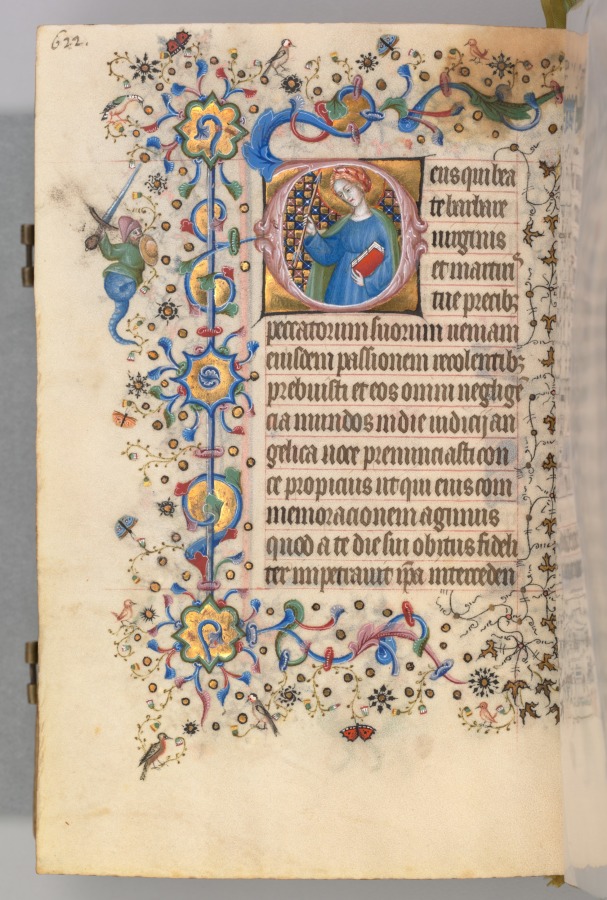 622.
Deus qui bea
te barbare
uirginis
et martiris
tue precib;
peccatorum suorum ueniam
eiusdem passionem recolentib;
prebuisti et eos omni neglige
cia mundos in die iudicij an
gelica uoce prenunciasti con
ce propicius ut qui eius com
memoracionem agimus
quod a te die sui obitus fideli
ter impetrauit ipa interceden